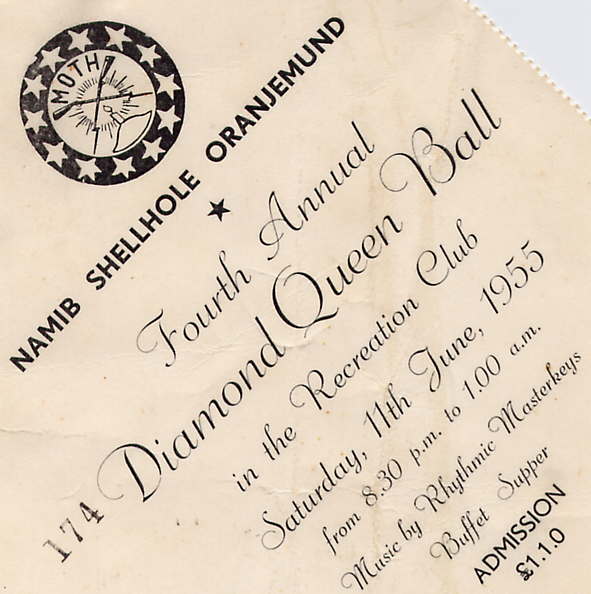 MOTH
NAMIB SHELLHOLE ORANJEMUND
Fourth Annual
Diamond Queen Ball
in the Recreation Club
Saturday, 11th June, 1955
from 8.30 p.m. to 1.00 a.m.
Music by Rhythmic Masterkeys
Buffet Supper
ADMISSION
£1.1.0
174